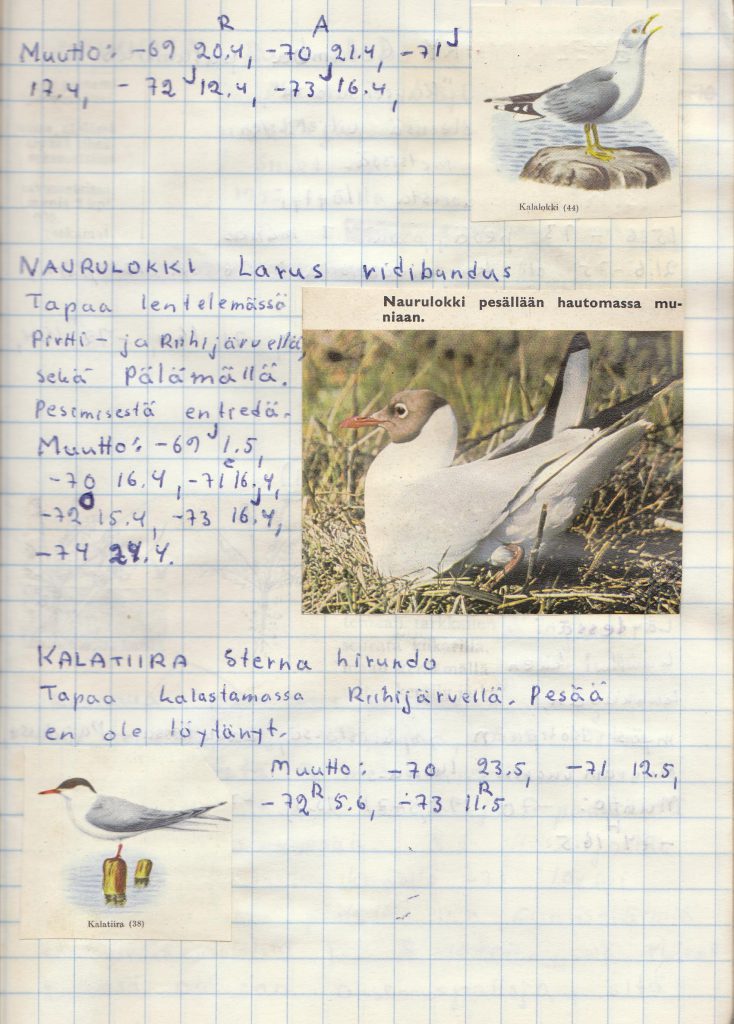 R A
Muutto: -69 20.4, -70 21.4, -71 J
17.4, - 72 J 12.4, -73 J 16.4,
Kalalokki (44)
NAURULOKKI Larus ridibundus
Tapaa lentelemässä
Pirtti- ja Riihijärvellä,
sekä Pälämällä.
Pesimisestä en tiedä.
Muutto: -69 J 1.5,
-70 16.4, -71 16.4,
-72 15.4, -73 16.4,
-74 24.4.
Naurulokki pesällään hautomassa mu-
niaan.
KALATIIRA Sterna hirundo
Tapaa kalastamassa Riihijärvellä. Pesää
en ole löytänyt.
Muutto: -70 23.5, -71 12.5,
-72 R 5.6, -73 11.5 R
Kalatiira (38)